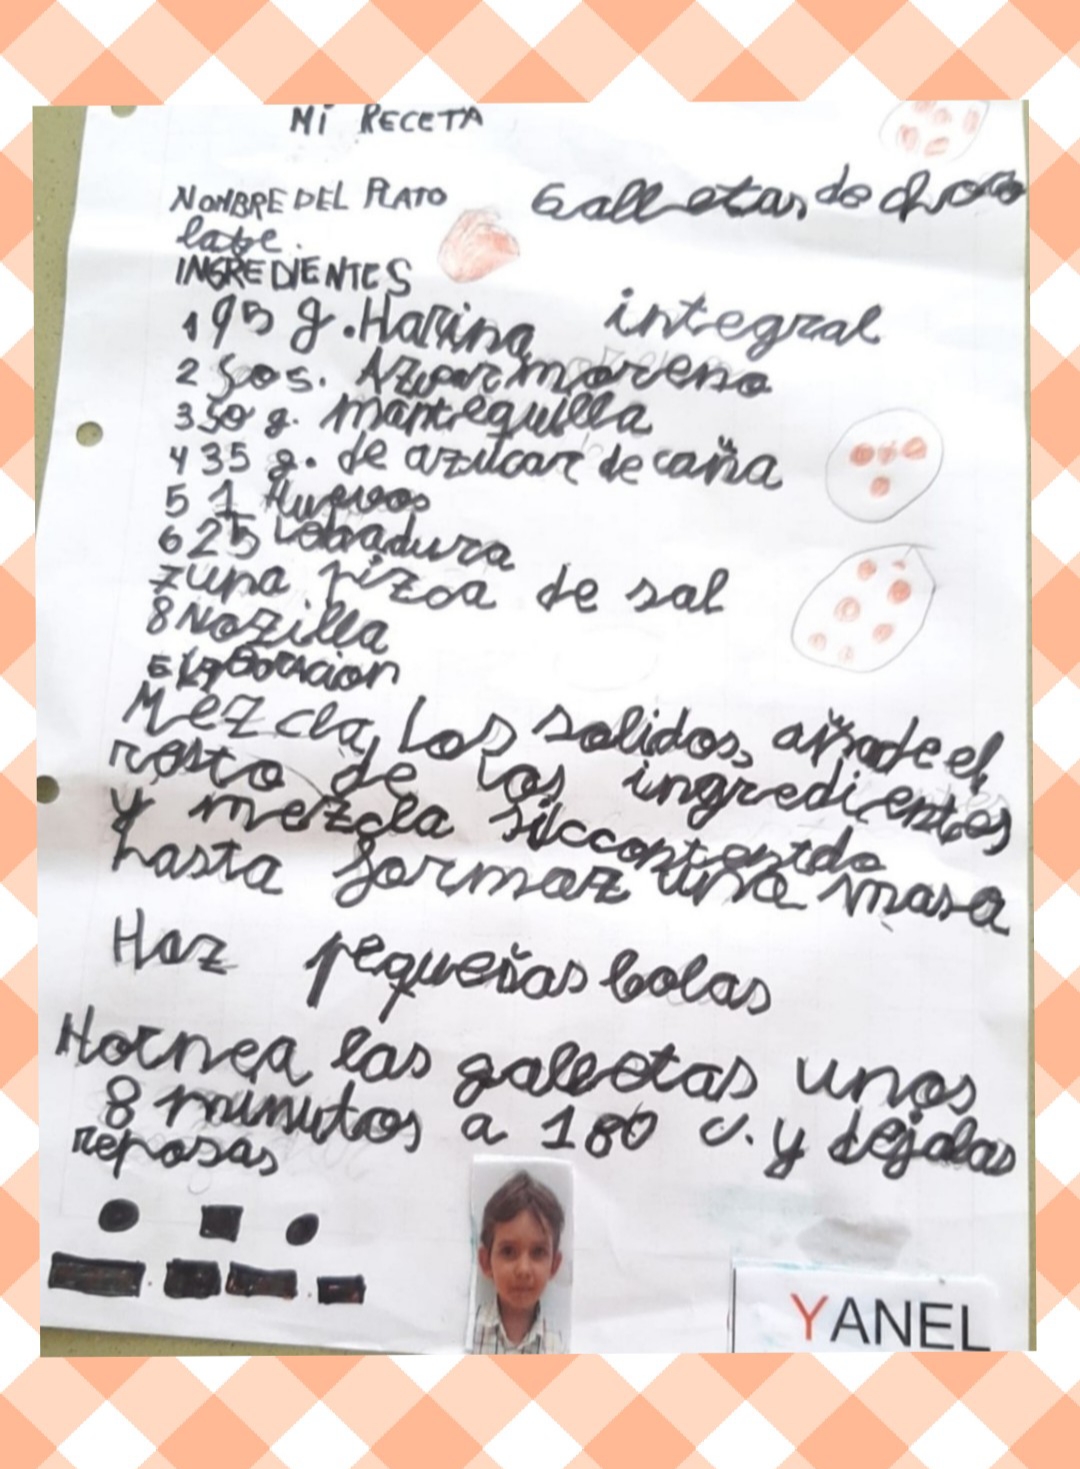 Mi RECETA
NOMBRE DEL PLATO Galletas de choco
late.
INGREDIENTES
1 95 g. Harina integral
2 50s. Azucar moreno
3 50 g. mantequilla
4 35 g. de azucar de caña
5 1 Huevos
6 25 Lobadura
7 una pizca de sal
8 Nozilla
ELABORACION
Mezcla, los solidos, añade el
resto de los ingredientes
y mezcla
hasta formar una masa
Haz pequeñas bolas
Hornea las galletas unos
8 minutos a 180 c. y dejalas
reposas
YANEL